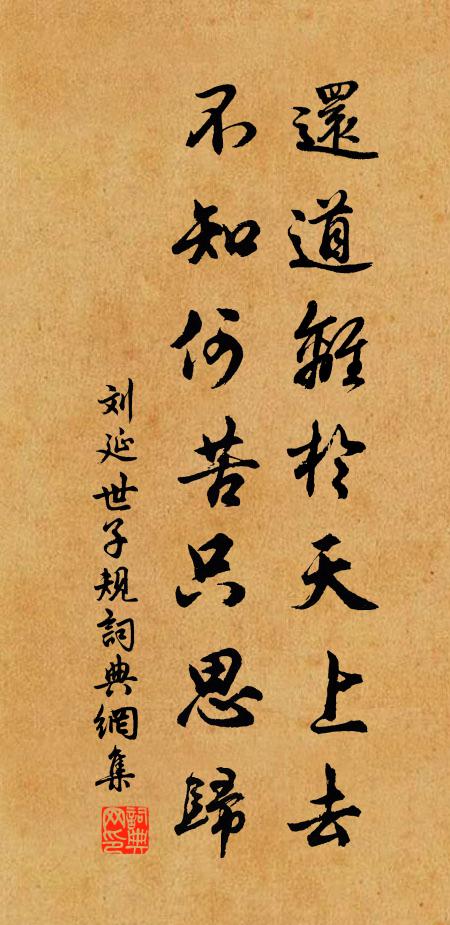 還道難於天上去
不知何苦只思歸
刘延世子規詞典網集
詞典网印